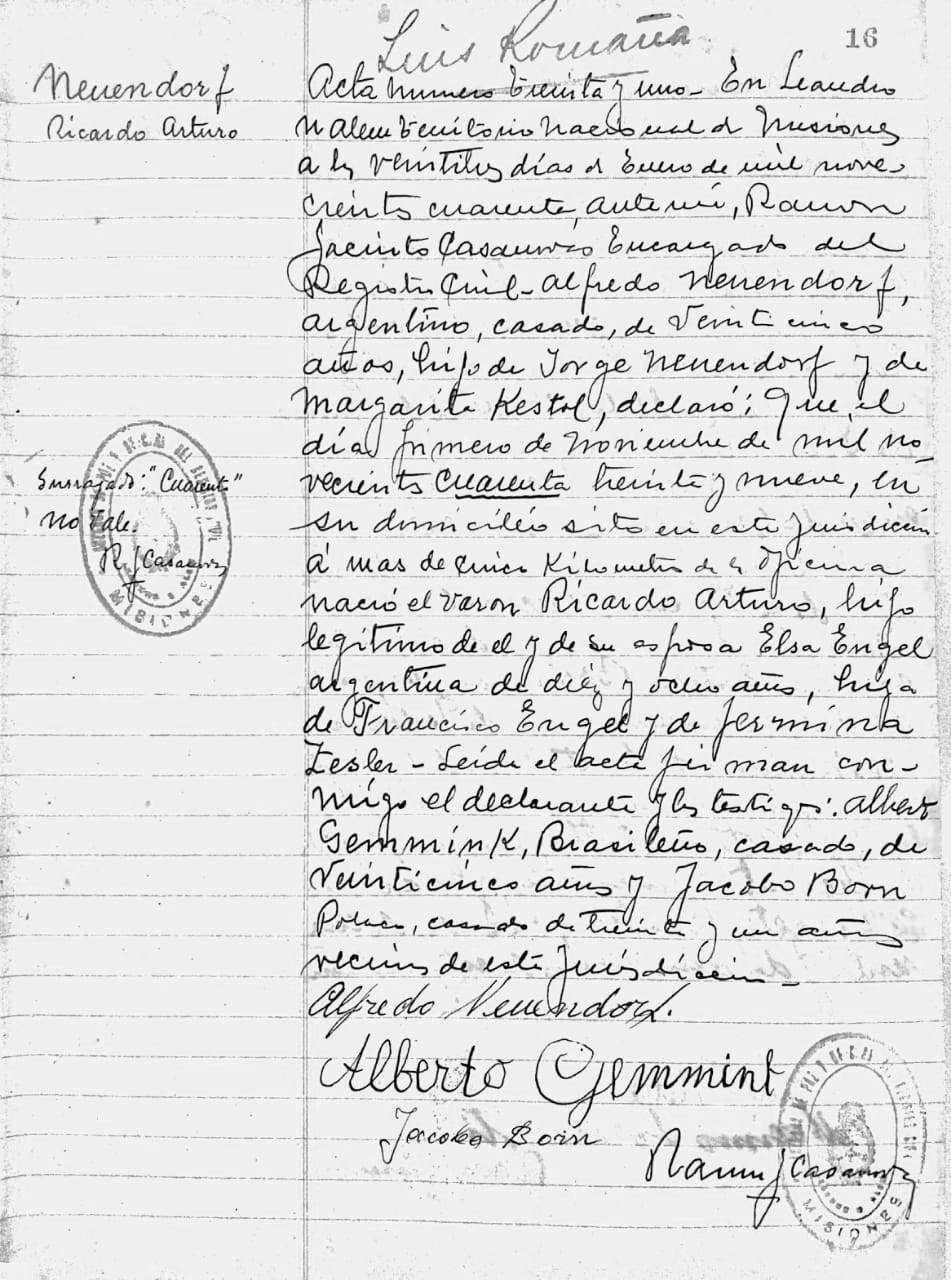 Luis Romaña
16
Neuendorf
Ricardo Arturo
Acta numero treinta y uno - En Leandro
N Alem territorio Nacional de Misiones
a los veintitres días de Enero de mil nove-
cientos cuarenta, ante mi, Ramon
Jacinto Casanovas Encargado del
Registro Civil - Alfredo Neuendorf,
argentino, casado, de veinticinco
años, hijo de Jorge Neuendorf y de
Margarita Kestol, declaró: Que, el
día primero de Noviembre de mil no
vecientos cuarenta treinta y nueve, en
su domicilio sito en esta Jurisdiccion
á mas de cinco Kilometros de la oficina
nació el varon Ricardo Arturo, hijo
legítimo de el y de su esposa Elsa Engel
argentina de diéz y ocho años, hija
de Francisco Engel y de Jermina
Zesler - Leída el acta firman con-
migo el declarante y los testigos: Alberto
Gemmink, Brasileño, casado, de
veinticinco años y Jacobo Born
Polaco, casado de treinta y un años
vecinos de esta Jurisdiccion -
Surrayado: "Cuarenta"
no vale.
R J Casanovas
MISIONES
Alfredo Neuendorf.
Alberto Gemmink
Jacobo Born
Ramon J Casanovas
MISIONES